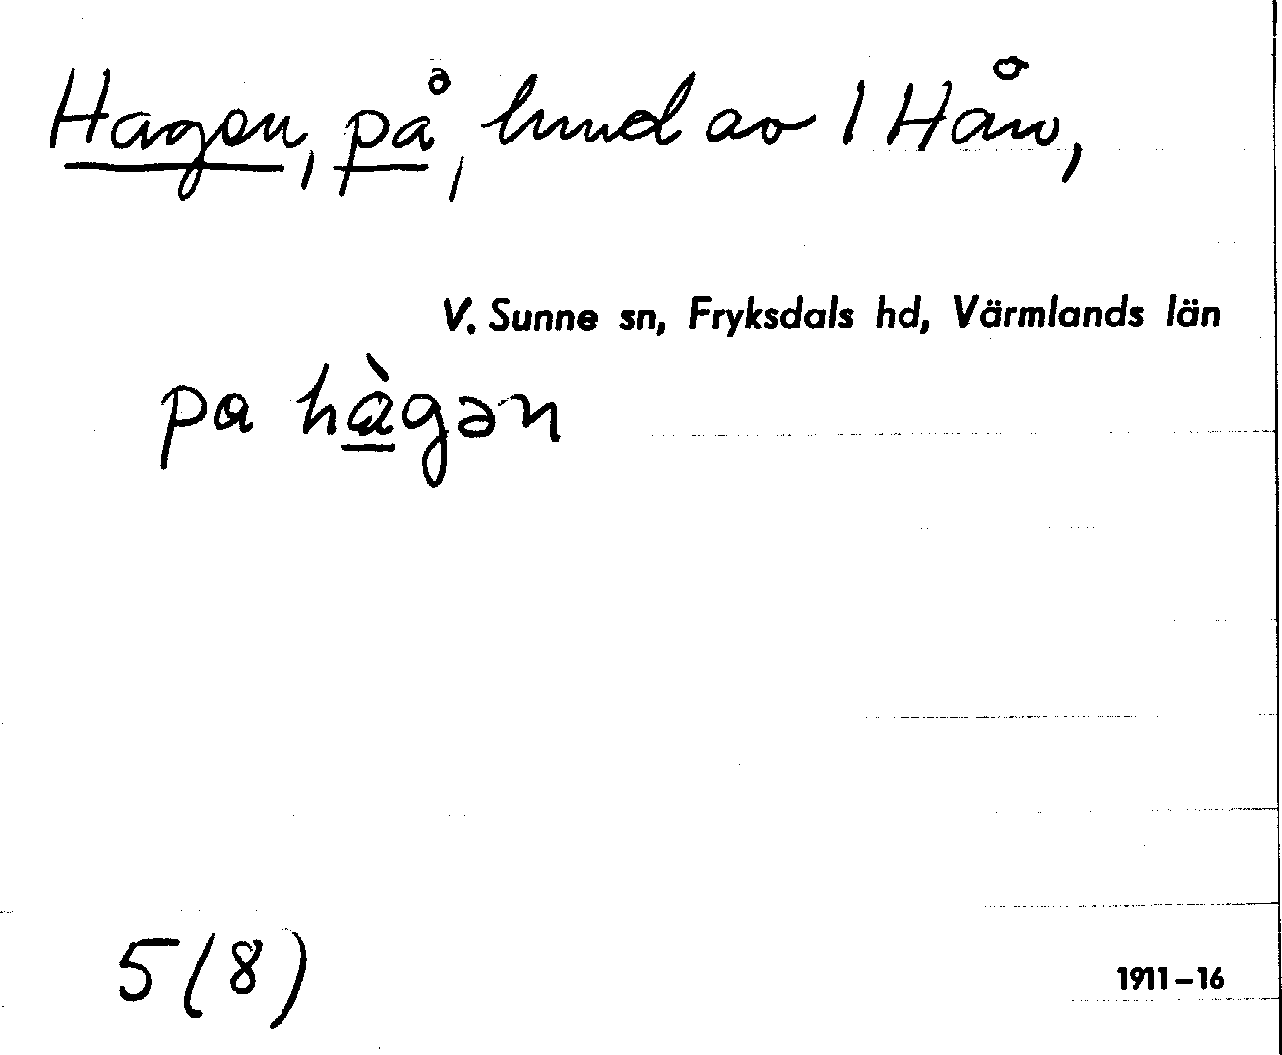 Hagen, på, hmd av 1 Hån,
V. Sunne sn, Fryksdals hd, Värmlands län
pa hàgən
5(8)
1911–16